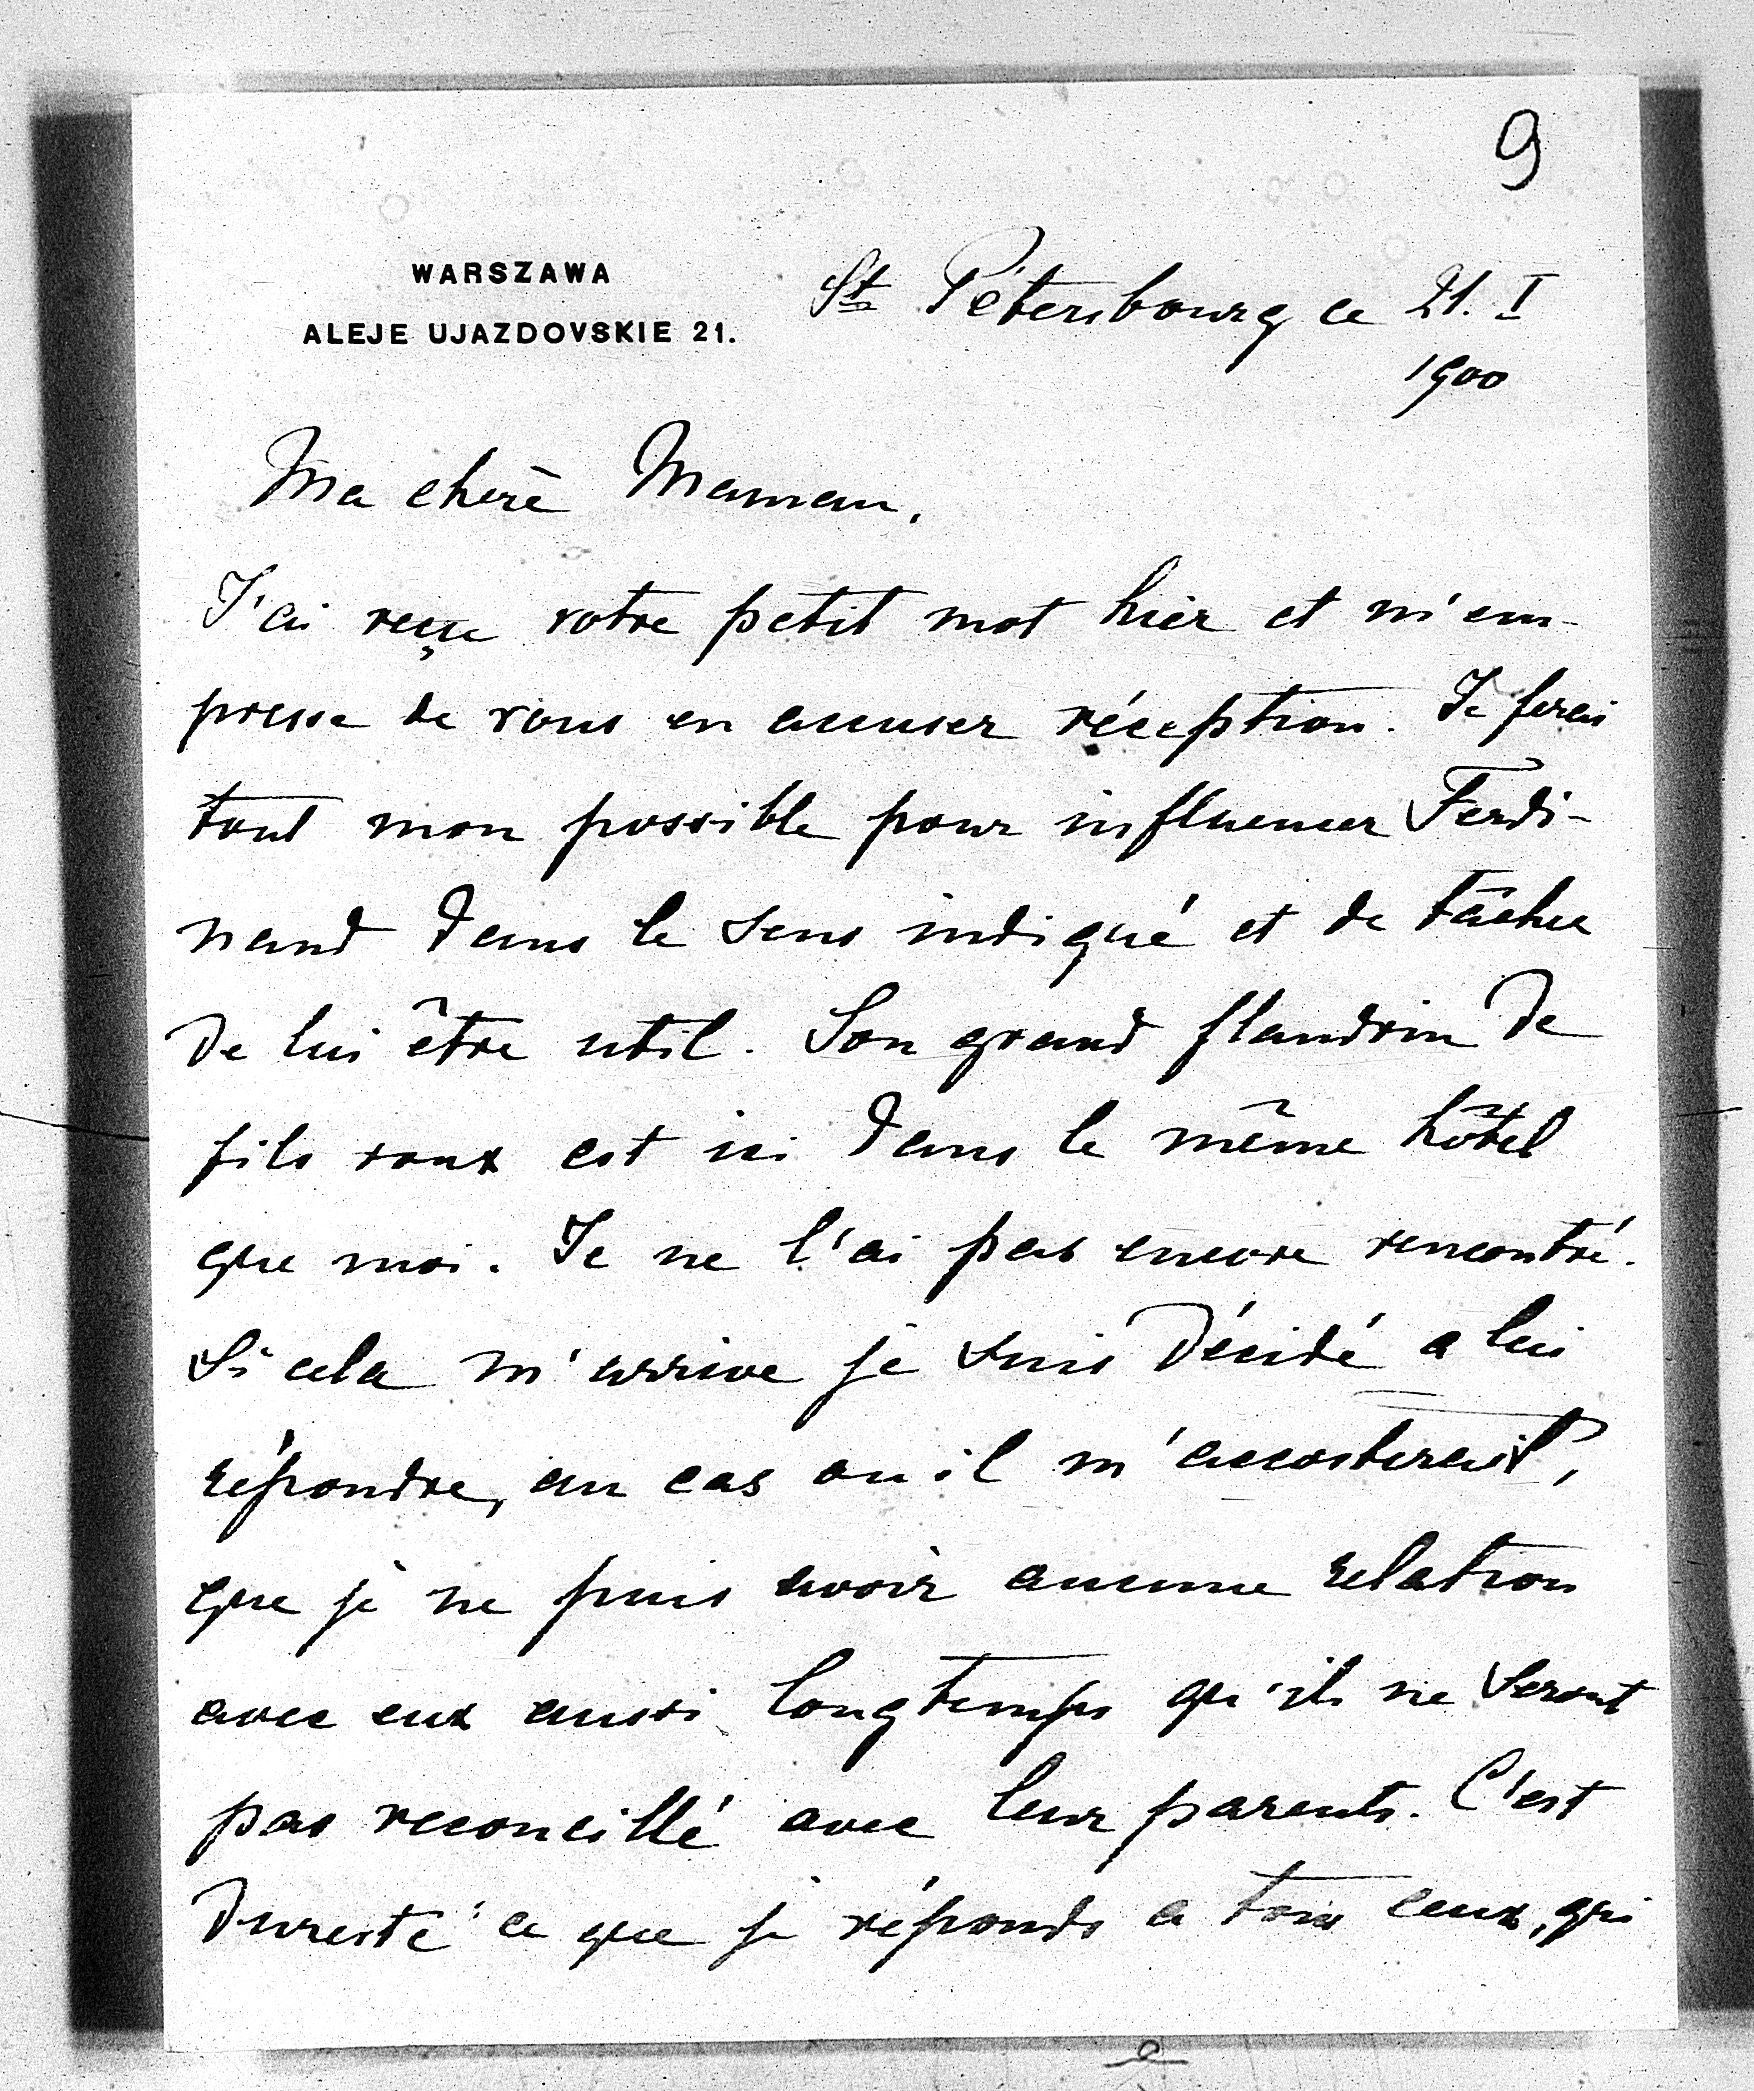 9
WARSZAWA
ALEJE UJAZDOVSKIE 21.
St Pétersbourg ce 21. I
1900
Ma chère Maman,
J'ai reçu votre petit mot hier et m'em-
presse de vous en accuser réception. Je ferai
tout mon possible pour influencer Ferdi-
nand dans le sens indiqué et de tâcher
de lui être util. Son grand flandrin de
fils roux est ici dans le même hôtel
que moi. Je ne l'ai pas encore rencontré.
Si cela m'arrive je suis décidé a lui
répondre, au cas ou il m'accosterait,
que je ne puis avoir aucune relation
avec eux aussi longtemps qu'ils ne seront
pas reconcillé avec leur parents. C'est
dureste ce que je réponds a tous ceux, qui